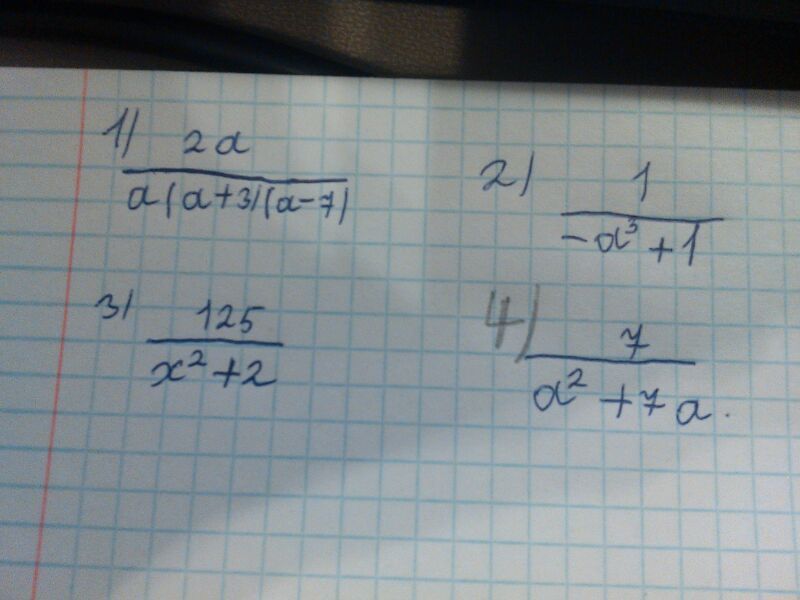 1) 2a
a(a+3)(a-7)
2) 1
-a³+1
3) 125
x²+2
4) 7
a²+7a.